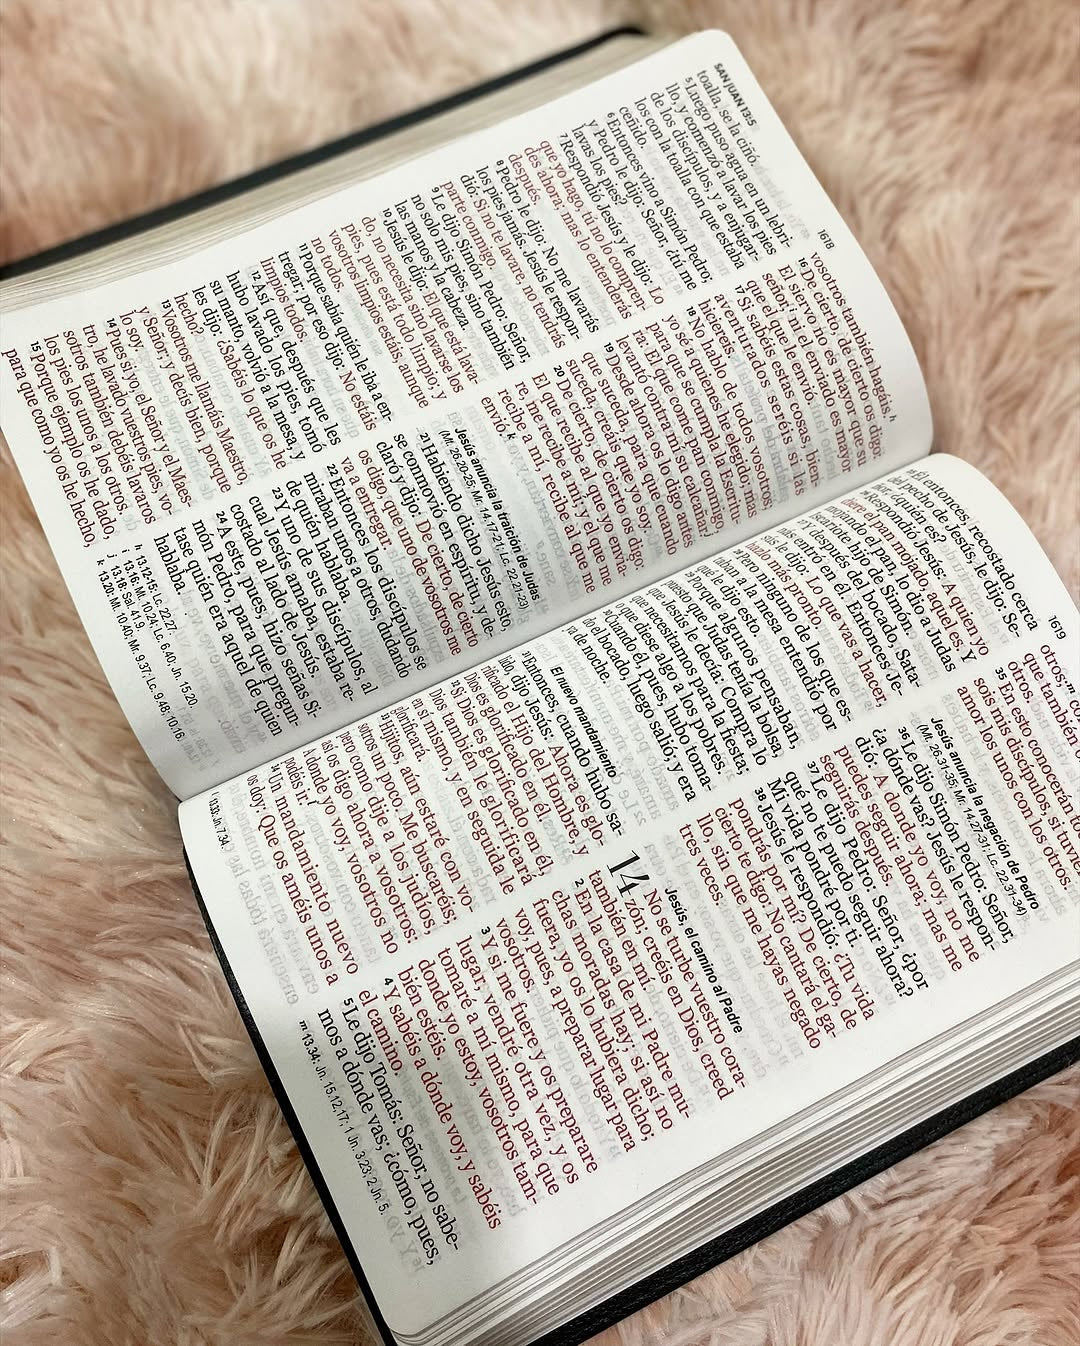 SAN JUAN 13:5
1678
toalla, se la ciñó.
5 Luego puso agua en un lebri-
llo, y comenzó a lavar los pies
de los discípulos, y a enjugar-
los con la toalla con que estaba
ceñido.
6 Entonces vino a Simón Pedro;
y Pedro le dijo: Señor, ¿tú me
lavas los pies?
7 Respondió Jesús y le dijo: Lo
que yo hago, tú no lo compren-
des ahora; mas lo entenderás
después.
8 Pedro le dijo: No me lavarás
los pies jamás. Jesús le respon-
dió: Si no te lavare, no tendrás
parte conmigo.
9 Le dijo Simón Pedro: Señor,
no solo mis pies, sino también
las manos y la cabeza.
10 Jesús le dijo: El que está lava-
do, no necesita sino lavarse los
pies, pues está todo limpio; y
vosotros limpios estáis, aunque
no todos.
11 Porque sabía quién le iba a en-
tregar; por eso dijo: No estáis
limpios todos.
12 Así que, después que les
hubo lavado los pies, tomó
su manto, volvió a la mesa, y
les dijo: ¿Sabéis lo que os he
hecho?
13 Vosotros me llamáis Maestro,
y Señor; y decís bien, porque
lo soy.
14 Pues si yo, el Señor y el Maes-
tro, he lavado vuestros pies, vo-
sotros también debéis lavaros
los pies los unos a los otros.
15 Porque ejemplo os he dado,
para que como yo os he hecho,
vosotros también hagáis. h
16 De cierto, de cierto os digo:
El siervo no es mayor que su
señor, i ni el enviado es mayor
que el que le envió.
17 Si sabéis estas cosas, bien-
aventurados seréis si las
hiciereis.
18 No hablo de todos vosotros;
yo sé a quienes he elegido; mas
para que se cumpla la Escritu-
ra: El que come pan conmigo,
levantó contra mí su calcañar. j
19 Desde ahora os lo digo antes
que suceda, para que cuando
suceda, creáis que yo soy.
20 De cierto, de cierto os digo:
El que recibe al que yo envia-
re, me recibe a mí; y el que me
recibe a mí, recibe al que me
envió. k
Jesús anuncia la traición de Judas
(Mt. 26.20-25; Mr. 14.17-21; Lc. 22.21-23)
21 Habiendo dicho Jesús esto,
se conmovió en espíritu, y de-
claró y dijo: De cierto, de cierto
os digo, que uno de vosotros me
va a entregar.
22 Entonces los discípulos se
miraban unos a otros, dudando
de quién hablaba.
23 Y uno de sus discípulos, al
cual Jesús amaba, estaba re-
costado al lado de Jesús.
24 A este, pues, hizo señas Si-
món Pedro, para que pregun-
tase quién era aquel de quien
hablaba.
h 13.12-15: Lc. 22.27.
i 13.16: Mt. 10.24; Lc. 6.40; Jn. 15.20.
j 13.18: Sal. 41.9.
k 13.20: Mt. 10.40; Mr. 9.37; Lc. 9.48; 10.16.
1679
25 Él entonces, recostado cerca
del pecho de Jesús, le dijo: Se-
ñor, ¿quién es?
26 Respondió Jesús: A quien yo
diere el pan mojado, aquel es. Y
mojando el pan, lo dio a Judas
Iscariote hijo de Simón.
27 Y después del bocado, Sata-
nás entró en él. Entonces Je-
sús le dijo: Lo que vas a hacer,
hazlo más pronto.
28 Pero ninguno de los que es-
taban a la mesa entendió por
qué le dijo esto.
29 Porque algunos pensaban,
puesto que Judas tenía la bolsa,
que Jesús le decía: Compra lo
que necesitamos para la fiesta;
o que diese algo a los pobres.
30 Cuando él, pues, hubo toma-
do el bocado, luego salió; y era
ya de noche.
El nuevo mandamiento
31 Entonces, cuando hubo sa-
lido, dijo Jesús: Ahora es glo-
rificado el Hijo del Hombre, y
Dios es glorificado en él.
32 Si Dios es glorificado en él,
Dios también le glorificará
en sí mismo, y en seguida le
glorificará.
33 Hijitos, aún estaré con vo-
sotros un poco. Me buscaréis;
pero como dije a los judíos,
así os digo ahora a vosotros:
A donde yo voy, vosotros no
podéis ir. l
34 Un mandamiento nuevo
os doy: Que os améis unos a
l 13.33: Jn. 7.34.
otros; m c
que también
otros.
35 En esto conocerán t
sois mis discípulos, si tuvie
amor los unos con los otros.
Jesús anuncia la negación de Pedro
(Mt. 26.31-35; Mr. 14.27-31; Lc. 22.31-34)
36 Le dijo Simón Pedro: Señor,
¿a dónde vas? Jesús le respon-
dió: A donde yo voy, no me
puedes seguir ahora; mas me
seguirás después.
37 Le dijo Pedro: Señor, ¿por
qué no te puedo seguir ahora?
Mi vida pondré por ti.
38 Jesús le respondió: ¿Tu vida
pondrás por mí? De cierto, de
cierto te digo: No cantará el ga-
llo, sin que me hayas negado
tres veces.
Jesús, el camino al Padre
14 No se turbe vuestro cora-
zón; creéis en Dios, creed
también en mí.
2 En la casa de mi Padre mu-
chas moradas hay; si así no
fuera, yo os lo hubiera dicho;
voy, pues, a preparar lugar para
vosotros.
3 Y si me fuere y os preparare
lugar, vendré otra vez, y os
tomaré a mí mismo, para que
donde yo estoy, vosotros tam-
bién estéis.
4 Y sabéis a dónde voy, y sabéis
el camino.
5 Le dijo Tomás: Señor, no sabe-
mos a dónde vas; ¿cómo, pues,
m 13.34: Jn. 15.12,17; 1 Jn. 3.23; 2 Jn. 5.